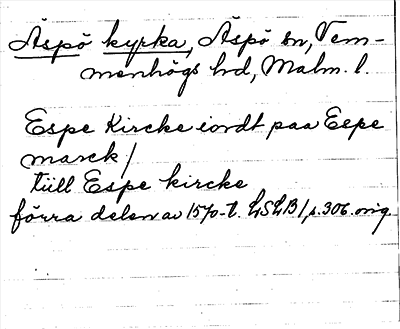 Äspö kyrka, Äspö sn, Vem-
menhögs hd, Malm. l.
Espe Kircke iordt paa Espe
marck /
tüll Espe kircke
förra delen av 1570-t. LSLB 1, s. 306. orig.